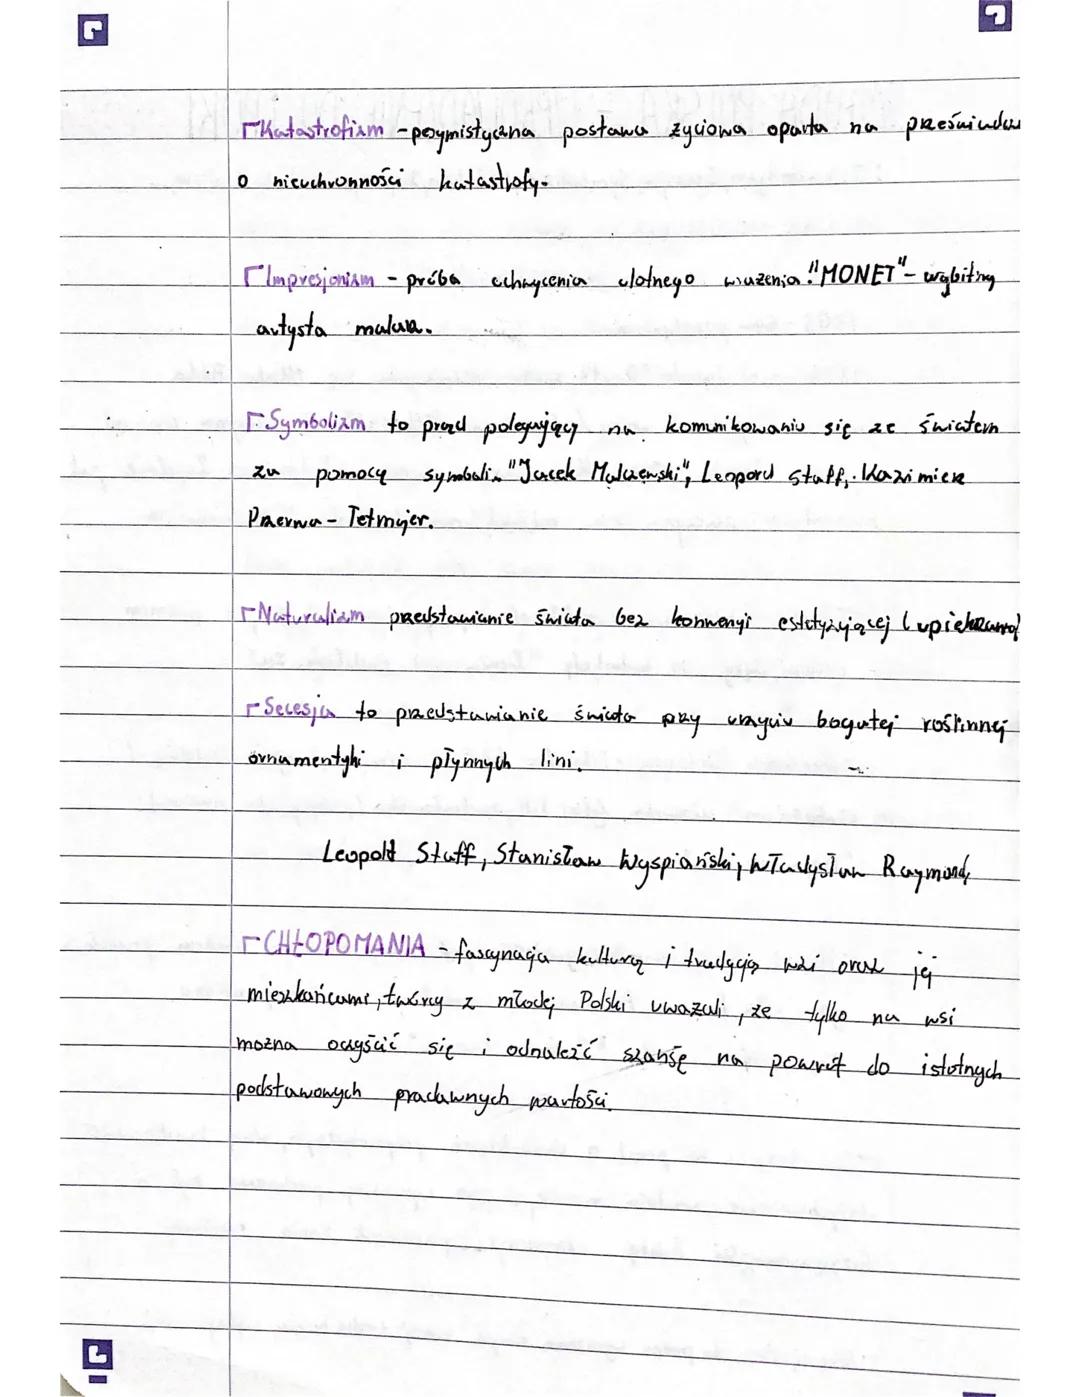 Katastrofizm - pesymistyczna postawa życiowa oparta na
o nieuchronności katastrofy.
Impresjonizm - próba uchwycenia ulotnego wrażenia. "MONET" - wybitny
artysta malarz.
Symbolizm to prąd polegający na komunikowaniu się ze światem
za pomocą symboli. "Jacek Malczewski", Leopord Staff, Kazimierz
Przerwa - Tetmajer.
Naturalizm przedstawianie świata bez konwenyi estetyzyjącej (
Secesja to przedstawianie świata przy urzyciu bogatej roślinnej
ornamentyki i płynnych lini.
Leopold Staff, Stanisław Wyspiański, Władysław Raymond,
CHŁOPOMANIA - fascynacja kulturą i tradycją wsi oraz jej
mieszkańcami, twórcy z młodej Polski uważali, że tylko na wsi
można oczyścić się i odnaleźć szansę na powrót do istotnych
podstawowych pradawnych wartości.